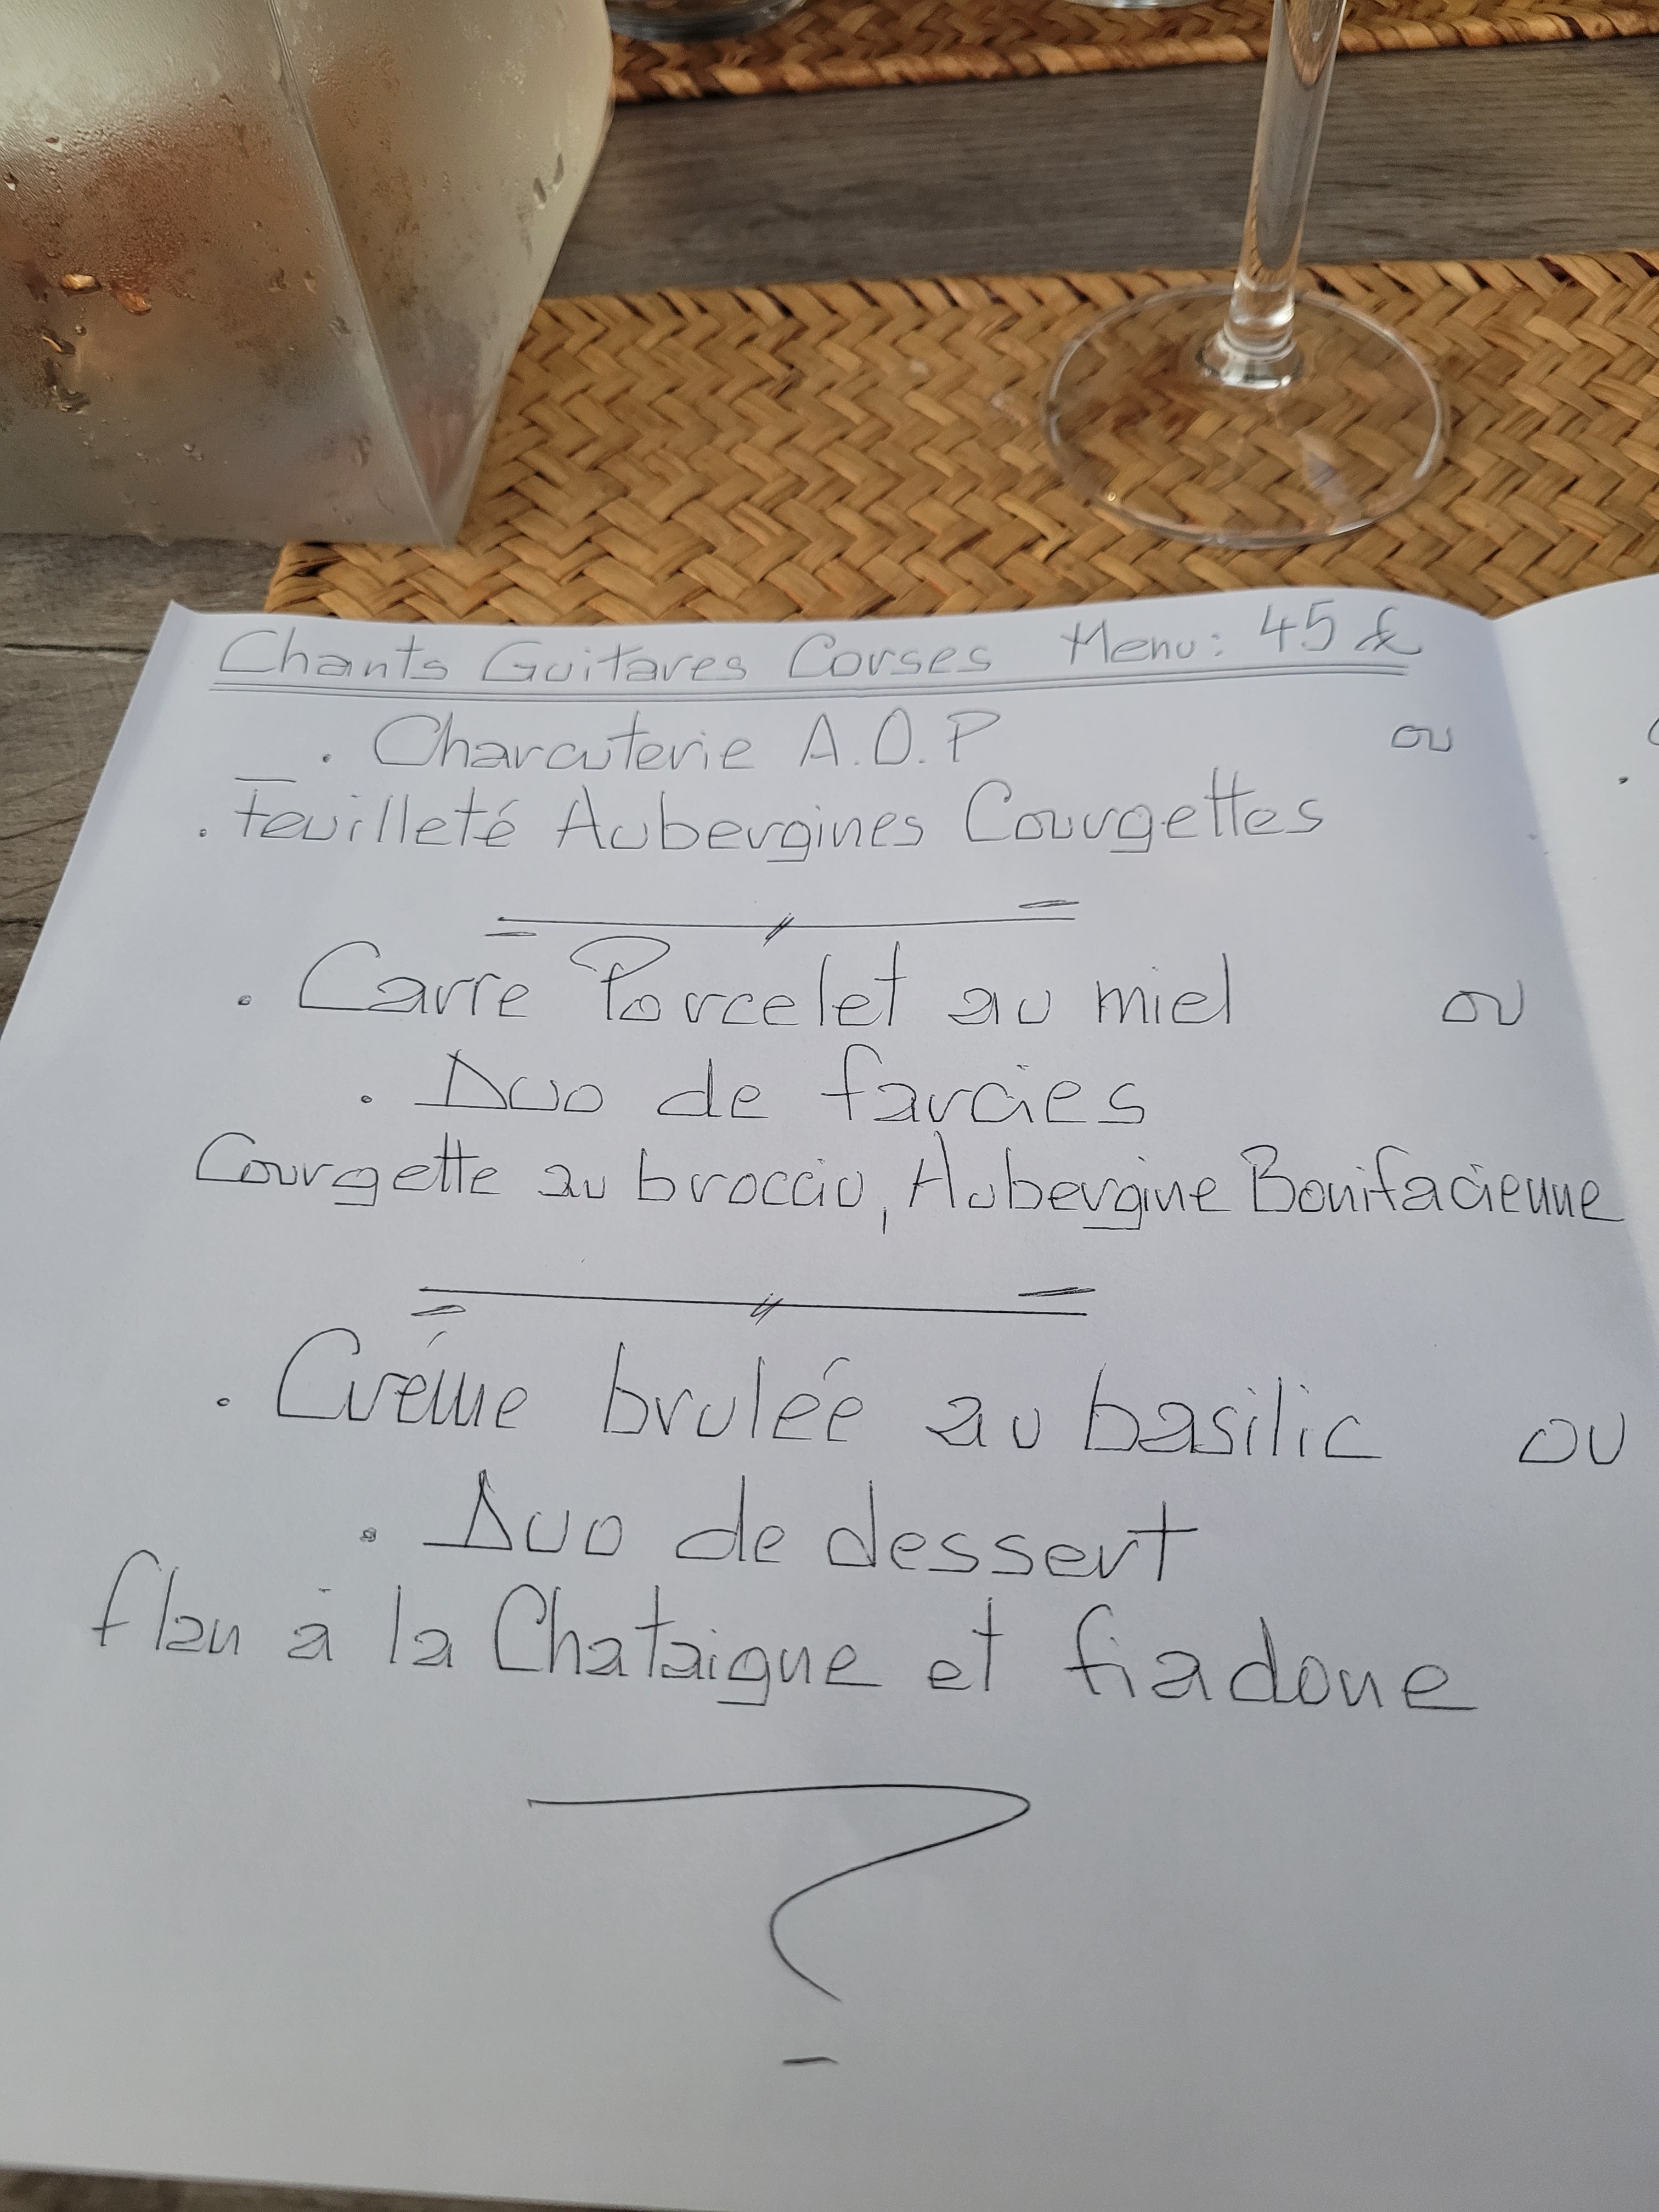 Chants Guitares Corses Menu: 45 €
. Charcuterie A.O.P ou
. Feuilleté Aubergines Courgettes
. Carre Porcelet au miel ou
. Duo de farcies
Courgette au brocciu, Aubergine Bonifacienne
. Créme brulée au basilic ou
. Duo de dessert
flan à la Chataigne et fiadone